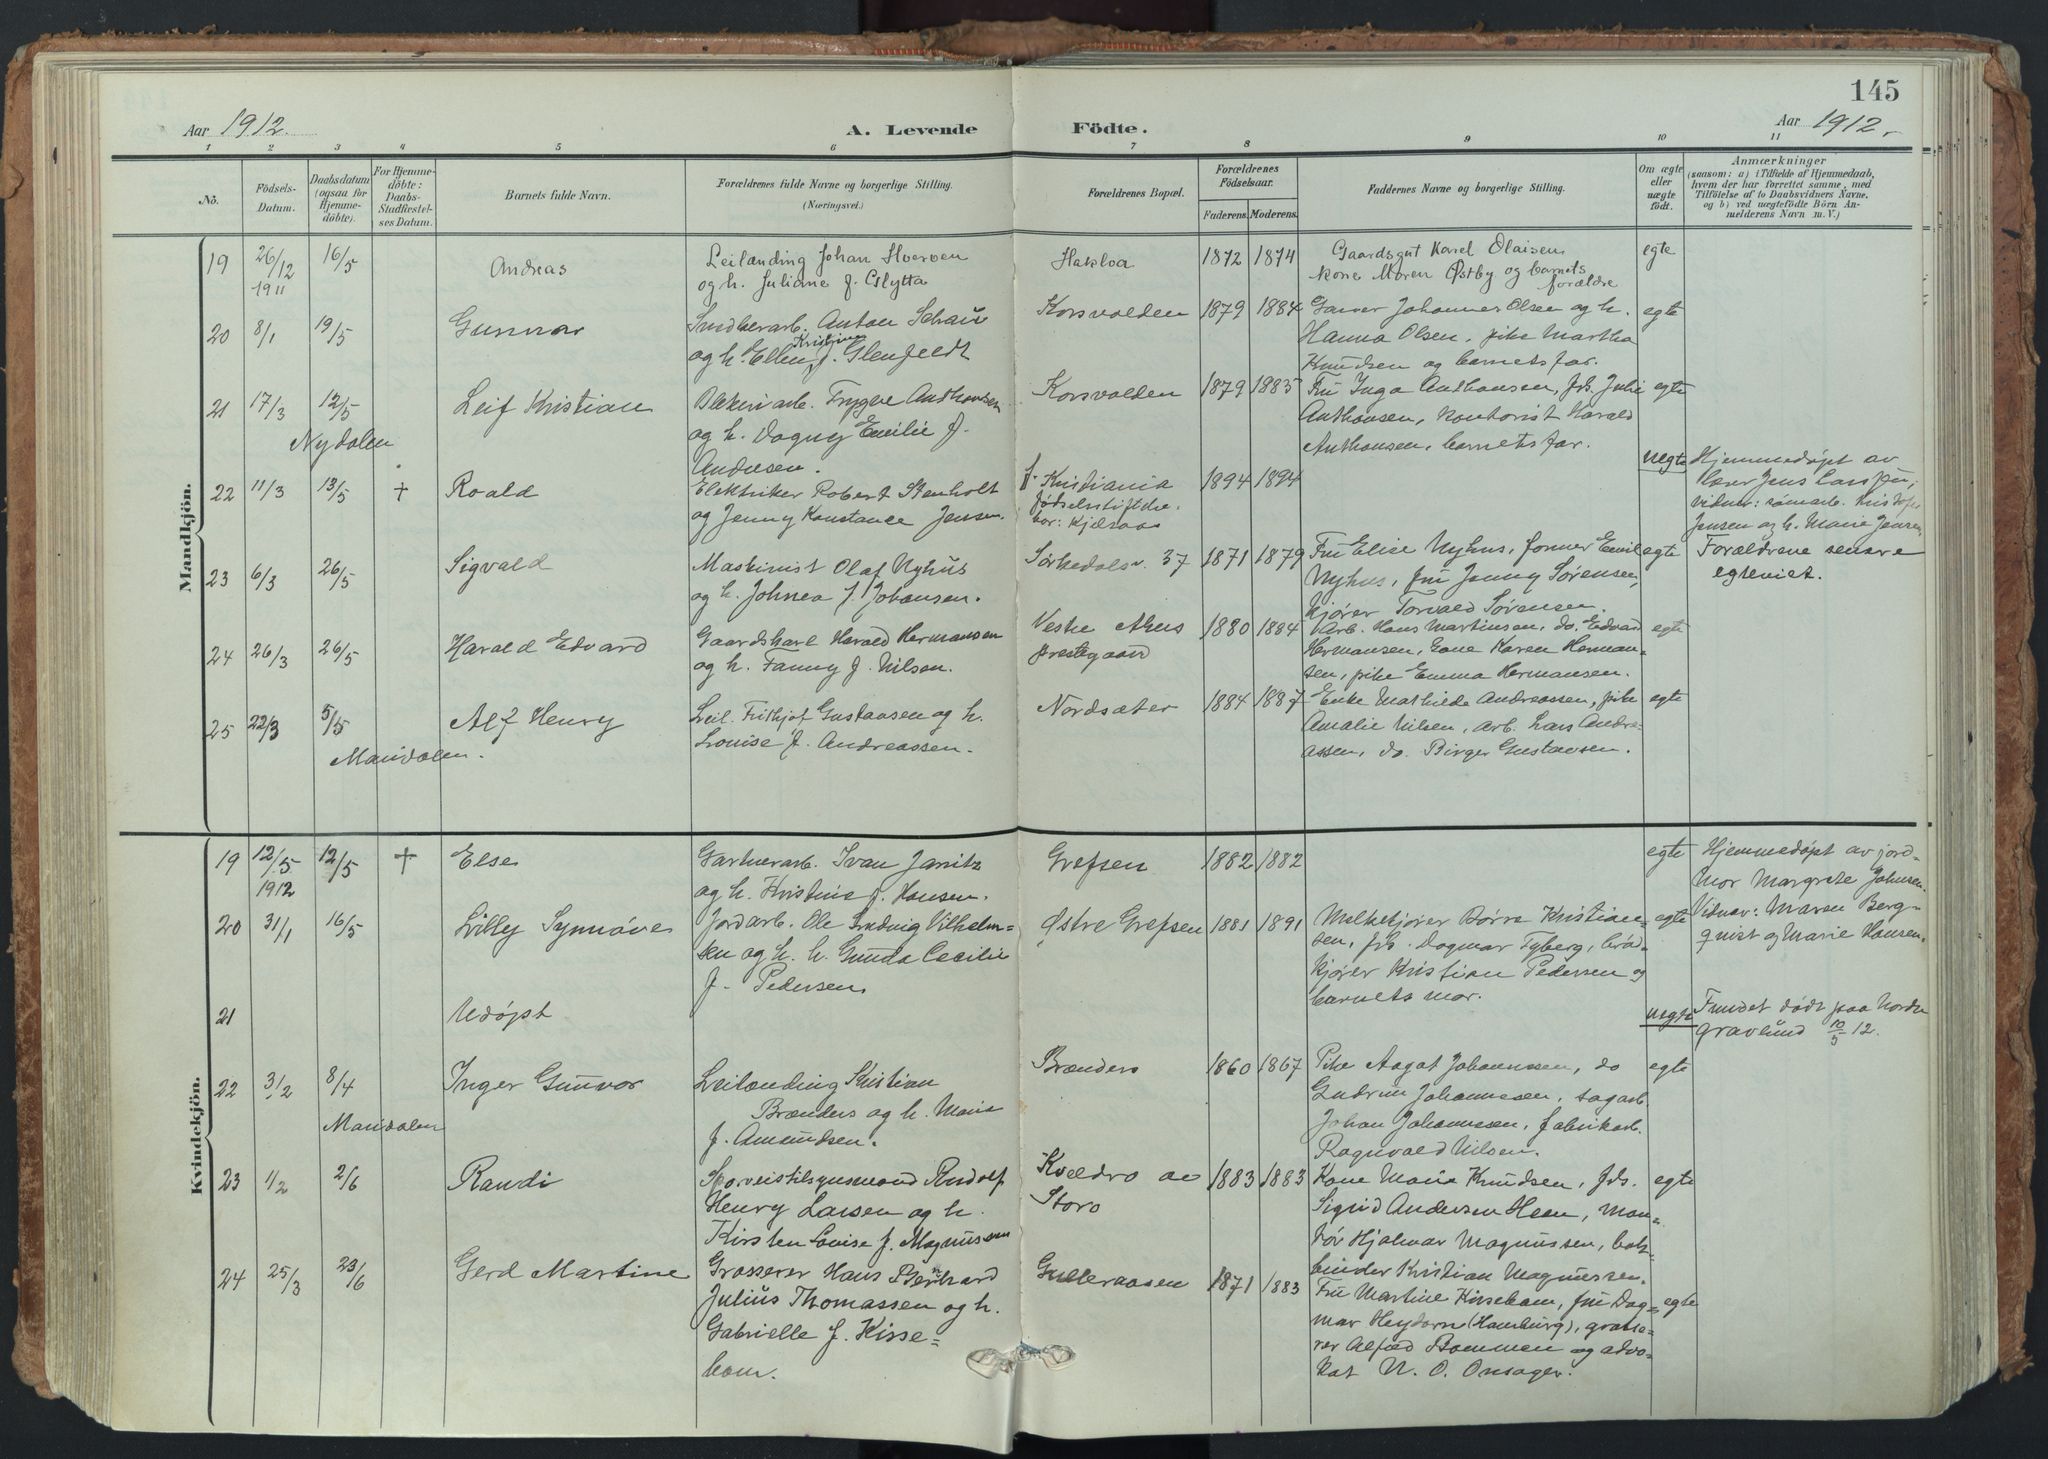 145
Aar 1912.
A. Levende Födte.
Aar 1912.
1 2 3 4 5 6 7 8 9 10 11
No.
Födsels-
Datum.
Daabsdatum
(ogsaa for
Hjemme-
döbte).
For Hjemme-
döbte:
Daabs-
Stadfæstel-
ses Datum.
Barnets fulde Navn.
Forældrenes fulde Navne og borgerlige Stilling.
(Næringsvei.)
Forældrenes Bopæl.
Forældrenes
Födselsaar.
Faderens. Moderens.
Faddernes Navne og borgerlige Stilling.
Om ægte
eller
uægte
födt.
Anmærkninger
(saasom: a) i Tilfælde af Hjemmedaab,
hvem der har forrettet samme, med
Tilföielse af to Daabsvidners Navne,
og b) ved uægtefödte Börn An-
melderens Navn m. V.)
Mandkjön.
19 26/12 1911 16/5 Andreas
Leilænding Johan
og h. Juliane f.
Hakloa 1872 1874
Gaardsgut Karel Olaisen
kone Maren Østby og barnets
forældre
egte
20 8/1 19/5 Gunnar
Anton
og h. Ellen Kristine f. Glenfeldt
Korsvolden 1879 1884
Garver Johannes Olsen og h.
Hanna Olsen, pike Martha
Knudsen og barnets far.
egte
21 17/3 12/5 Leif Kristian
Nydalen
Trygve Anthonsen
og h. Dagny Emilie f.
Andresen.
Korsvolden 1879 1885
Fru Inga Anthonsen, frk. Julie
Anthonsen, kontorist Harald
Anthonsen, barnets far.
egte
22 11/3 13/5 † Roald
Elektriker Robert Stenholt
og Jenny Konstance Jensen.
f. Kristiania
fødselsstiftelse.
bor: Kjelsaas
1894 1894
uegte
Hjemmedøpt av
Jens
vidner: Kristofer
Jensen og h. Marie Jensen
Forældrene senere
egteviet.
23 6/3 26/5 Sigvald
Maskinist Olaf Nyhus
og h. Johnea f. Johansen.
Sørkedalsv. 37 1871 1879
Fru Elise Nyhus, former Emil
Nyhus, fru Jenny Sørensen,
kjører Torvald Sørensen.
egte
24 26/3 26/5 Harald Edvard
Gaardskarl Harald Hermansen
og h. Fanny f. Nilsen.
Vestre Akers
prestegaard
1880 1884
Arb. Hans Martinsen, do. Edvard
Hermansen, kone Karen Herman-
sen, pike Emma Hermansen.
egte
25 22/3 5/5 Alf Henry
Maridalen.
Leil. Frithjof Gustavsen og h.
Lovise f. Andreassen.
Nordsæter 1884 1887
Enke Mathilde Andreassen, pike
Amalie Nilsen, arb. Lars Andre-
assen, do. Birger Gustavsen.
egte
Kvindekjön.
19 12/5 1912 12/5 † Else
Gartnerarb. Ivan Janitz
og h. Kristine f. Hansen.
Grefsen 1882 1882
egte
Hjemmedøpt av jord-
mor Margrete Johnsen.
Vidner: Maren Berg-
quist og Marie Hansen.
20 31/1 16/5 Lilly Synnöve
Jordarb. Ole Ludvig Vilhelm-
sen og h. h. Gunda Cecilie
f. Pedersen
Østre Grefsen 1881 1891
Melkekjører Børre Kristian-
sen, frk. Dagmar Tyberg, brød-
kjører Kristian Pedersen og
barnets mor.
egte
21 Udøpt
uegte
Fundet dødt paa Nordre
gravlund 10/5 12.
22 3/2 8/4 Inger Gunvor
Maridalen
Leilænding Kristian
Brænders og h. Marie
f. Amundsen.
Brænders 1860 1867
Pike Aagot Johannessen, do
Gudrun Johannessen, sagarb.
Johan Johannessen, fabrikarb.
Ragnvald Nilsen.
egte
23 1/2 2/6 Randi
Sporveistilsynsmand Rudolf
Henry Larsen og h.
Kirsten Lovise f. Magnussen
Kveldro av
Storo
1883 1883
Kone Maria Knudsen, frk.
Sigrid Andersen Heen, mon-
tør Hjalmar Magnussen, bok-
binder Kristian Magnussen.
egte
24 25/3 23/6 Gerd Martine
Grosserer Hans Bernhard
Julius Thomassen og h.
Gabrielle f. Kisse-
bom.
Gulleraasen 1871 1883
Fru Martine Kissebom, fru Dag-
mar Heydorn (Hamburg), grosse-
rer Alfred Bommen og advo-
kat N. O. Onsager.
egte